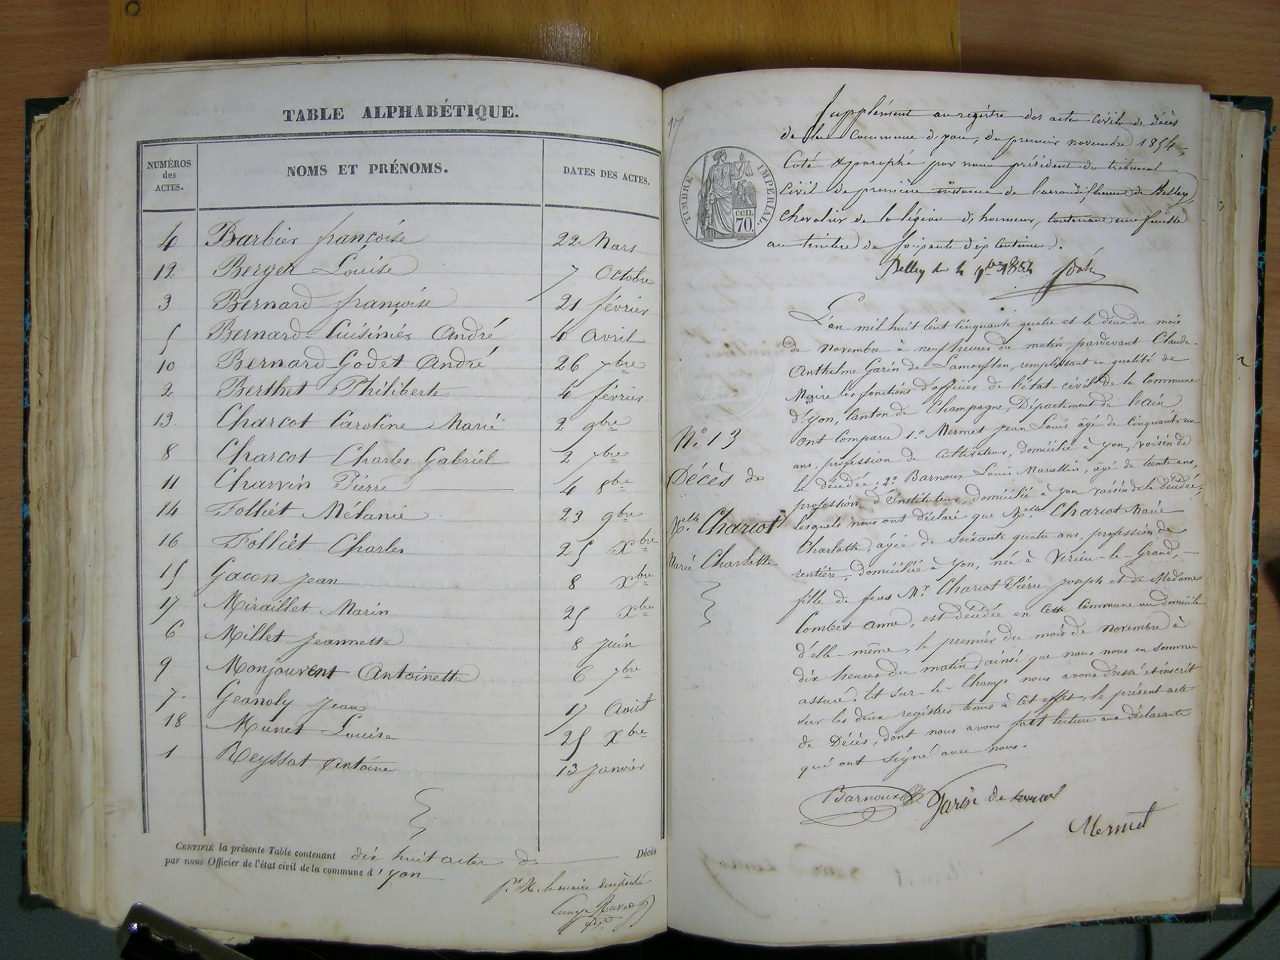 TABLE ALPHABÉTIQUE.
NUMÉROS des ACTES. NOMS ET PRÉNOMS. DATES DES ACTES.
4 Barbier françoise 22 Mars
12 Berger Louise 7 Octobre
3 Bernard françoise 21 février
5 Bernard-Cuisinier André 4 Avril
10 Bernard-Godet André 26 7bre
2 Berthet Philiberte 4 février
13 Charcot Caroline Marie 2 9bre
8 Charcot Charles Gabriel 2 7bre
11 Charvin Pierre 4 8bre
14 Folliet Mélanie 23 9bre
16 Folliet Charles 25 Xbre
15 Gacon Jean 8 Xbre
17 Miraillet Marin 25 Xbre
6 Millet Jeannette 8 Juin
9 Monjouvent Antoinette 6 7bre
7 Jean 17 Août
18 Louise 25 Xbre
1 Reyssat Antoine 13 Janvier
CERTIFIÉ la présente Table contenant dix huit actes de Décès
par nous Officier de l'état civil de la commune d'Yon
17
TIMBRE IMPÉRIAL.
70
Supplément au registre des acte civils de décès
de la Commune d'yon, du premier novembre 1854,
Coté & paraphé par nous président du tribunal
Civil de première instance de l'arrondissement de Belley,
Chevalier de la légion d'honneur, contenant une feuille
au timbre de soixante dix centimes.
Belley le 4 9bre 1854
N.° 13
Décès de
Melle Charcot
Marie Charlotte
L'an mil huit cent cinquante quatre et le deux du mois
de Novembre à neuf heures du matin pardevant Claude
Anthelme Garin de Lamorflan, remplissant en qualité de
Maire les fonctions d'officier de l'état civil de la Commune
d'Yon, Canton de Champagne, Département de l'ain
ont Comparu 1.° Mermet Jean Louis âgé de Cinquante un
ans, profession de Cultivateur, domicilié à yon, voisin de
la décédée, 2.° Barnoux Louis Marcellin, âgé de trente ans,
profession d'Instituteur, domicilié à yon voisin de la décédée,
lesquels nous ont déclaré que Melle Charcot Marie
Charlotte, âgée de soixante quatre ans, profession de
rentière, domiciliée à Yon, née à Virieu-le-Grand,
fille de feus Mr. Charcot Pierre Joseph et de Madame
Combet anne, est décédée en cette Commune au domicile
d'elle même, le premier du mois de novembre à
dix heures du matin, ainsi que nous nous en sommes
assuré. Et sur-le-Champ nous avons dressé et inscrit
sur les deux registres tenus à cet effet, le présent acte
de Décès, dont nous avons fait lecture aux déclarants
qui ont signé avec nous.
Barnoux Garin de Mermet